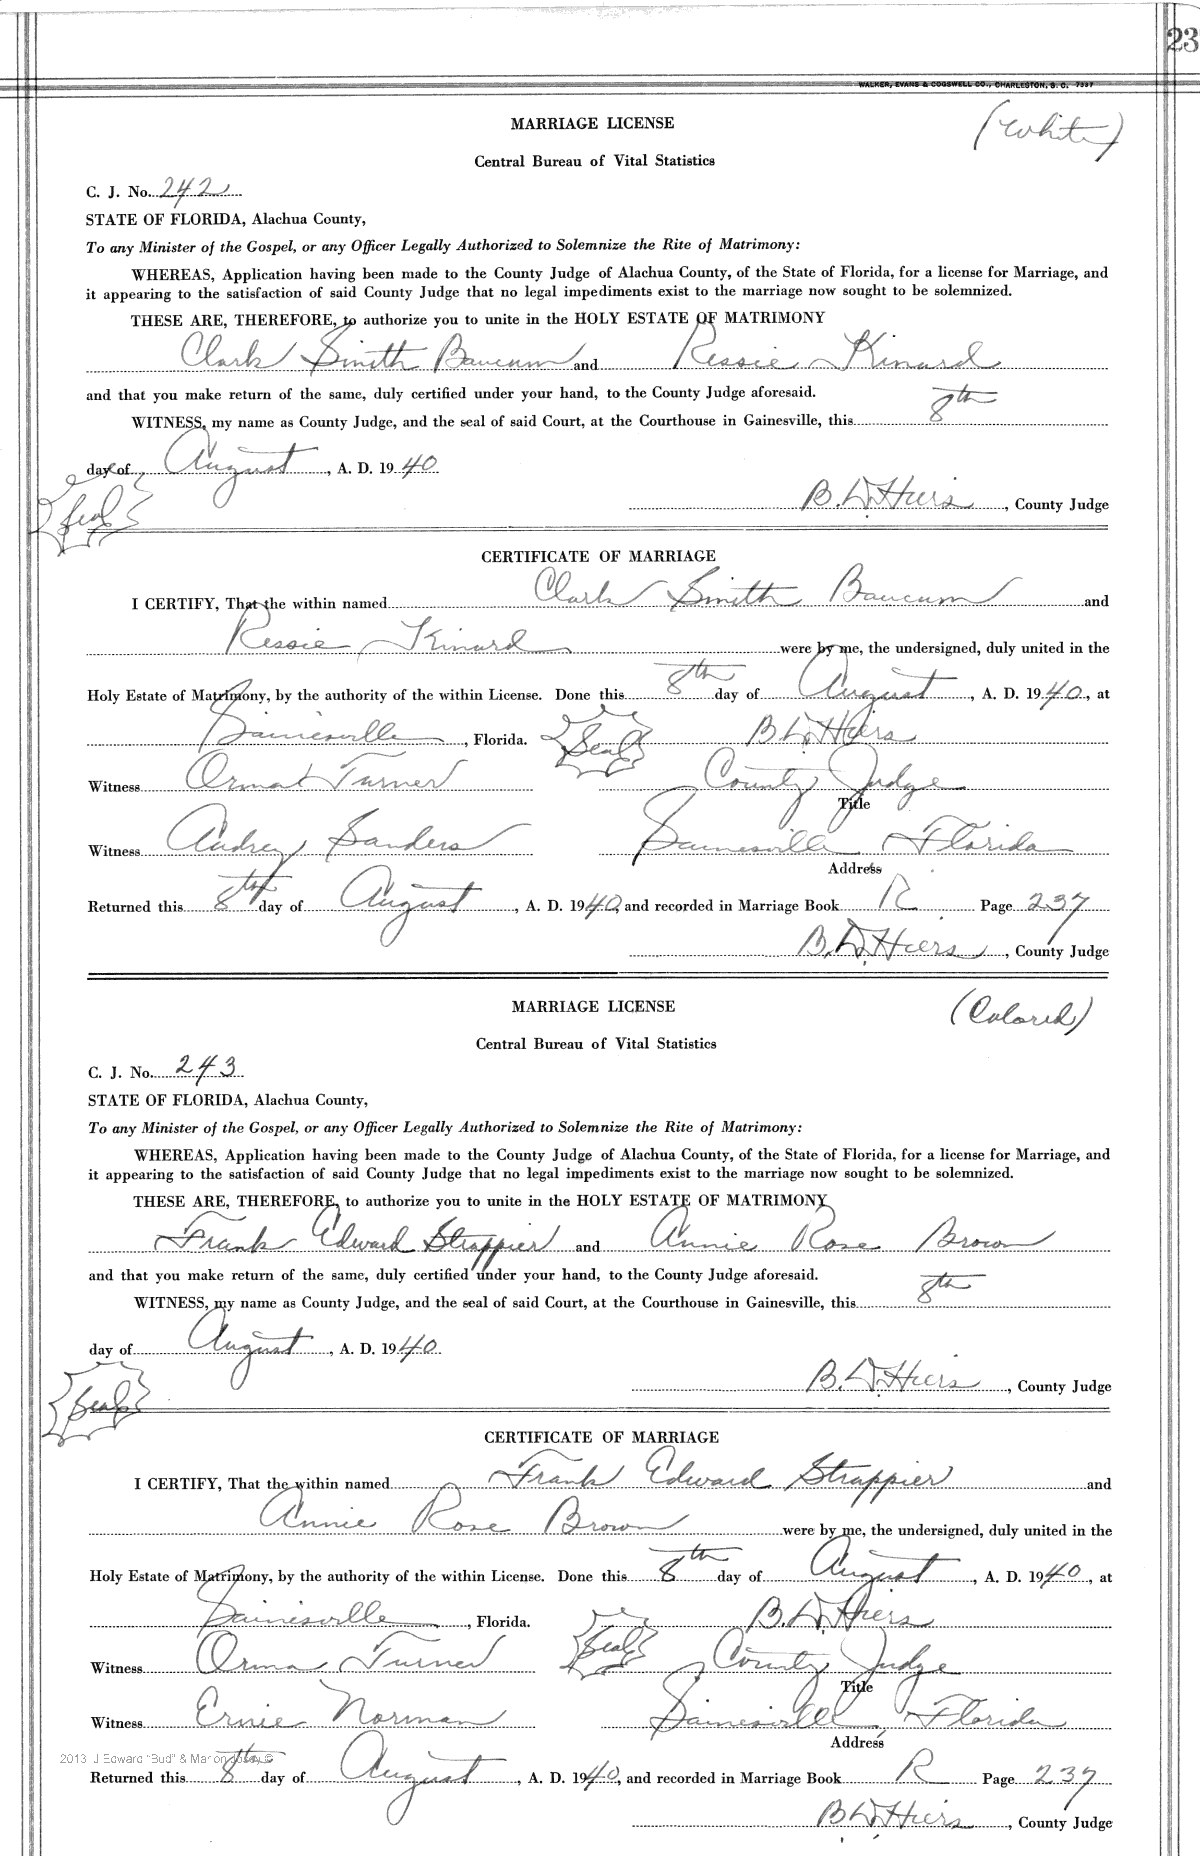 23
WALKER, EVANS & COGSWELL CO., CHARLESTON, S. C. 7337
MARRIAGE LICENSE
(White)
Central Bureau of Vital Statistics
C. J. No. 242
STATE OF FLORIDA, Alachua County,
To any Minister of the Gospel, or any Officer Legally Authorized to Solemnize the Rite of Matrimony:
WHEREAS, Application having been made to the County Judge of Alachua County, of the State of Florida, for a license for Marriage, and
it appearing to the satisfaction of said County Judge that no legal impediments exist to the marriage now sought to be solemnized.
THESE ARE, THEREFORE, to authorize you to unite in the HOLY ESTATE OF MATRIMONY
Clark Smith Baucum and Ressie Kinard
and that you make return of the same, duly certified under your hand, to the County Judge aforesaid.
WITNESS, my name as County Judge, and the seal of said Court, at the Courthouse in Gainesville, this 8th
day of August, A. D. 1940
Seal
B. D. Hiers, County Judge
CERTIFICATE OF MARRIAGE
I CERTIFY, That the within named Clark Smith Baucum and
Ressie Kinard were by me, the undersigned, duly united in the
Holy Estate of Matrimony, by the authority of the within License. Done this 8th day of August, A. D. 1940, at
Gainesville, Florida. Seal B. D. Hiers
Witness Orma Turner County Judge
Title
Witness Audrey Sanders Gainesville Florida
Address
Returned this 8th day of August, A. D. 1940, and recorded in Marriage Book R Page 237
B. D. Hiers, County Judge
MARRIAGE LICENSE
(Colored)
Central Bureau of Vital Statistics
C. J. No. 243
STATE OF FLORIDA, Alachua County,
To any Minister of the Gospel, or any Officer Legally Authorized to Solemnize the Rite of Matrimony:
WHEREAS, Application having been made to the County Judge of Alachua County, of the State of Florida, for a license for Marriage, and
it appearing to the satisfaction of said County Judge that no legal impediments exist to the marriage now sought to be solemnized.
THESE ARE, THEREFORE, to authorize you to unite in the HOLY ESTATE OF MATRIMONY
Frank Edward Strappier and Annie Rose Brown
and that you make return of the same, duly certified under your hand, to the County Judge aforesaid.
WITNESS, my name as County Judge, and the seal of said Court, at the Courthouse in Gainesville, this 8th
day of August, A. D. 1940
Seal
B. D. Hiers, County Judge
CERTIFICATE OF MARRIAGE
I CERTIFY, That the within named Frank Edward Strappier and
Annie Rose Brown were by me, the undersigned, duly united in the
Holy Estate of Matrimony, by the authority of the within License. Done this 8th day of August, A. D. 1940, at
Gainesville, Florida. Seal B. D. Hiers
Witness Orma Turner County Judge
Title
Witness Ernie Norman Gainesville Florida
Address
2013 J Edward "Bud" & Marion ©
Returned this 8th day of August, A. D. 1940, and recorded in Marriage Book R Page 237
B. D. Hiers, County Judge